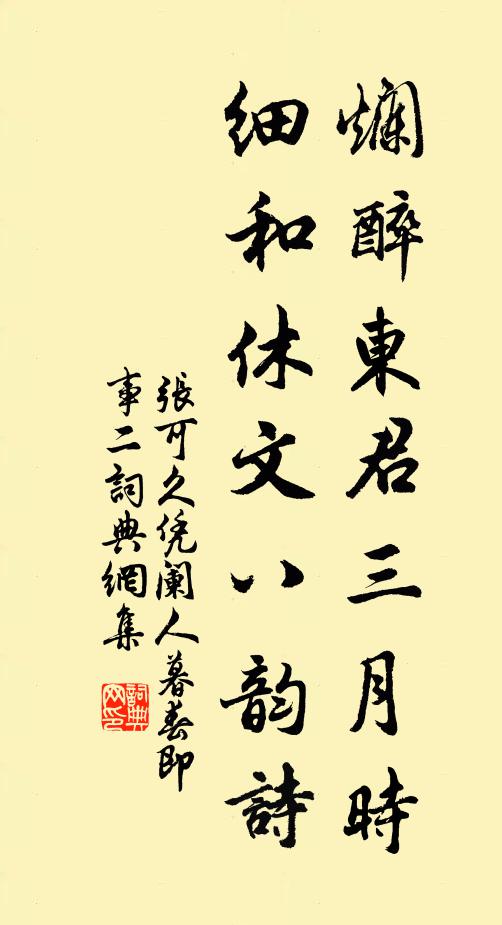 爛醉東君三月時
細和休文八韵詩
張可久凭闌人暮春即
事二詞典網集
詞典
网印